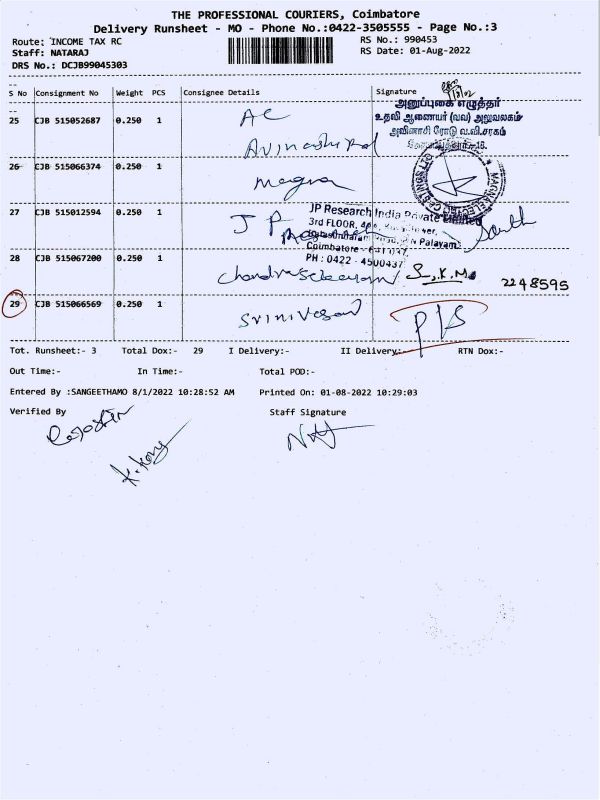 THE PROFESSIONAL COURIERS, Coimbatore
Delivery Runsheet - MO - Phone No.:0422-3505555 - Page No.:3
Route: INCOME TAX RC
RS No.: 990453
Staff: NATARAJ
RS Date: 01-Aug-2022
DRS No.: DCJB99045303
S No Consignment No Weight PCS Consignee Details Signature
அனுப்புகை எழுத்தர்
உதவி ஆணையர் (வவ) அலுவலகம்
அவினாசி ரோடு வ.வி.சரகம்
25 CJB 515052687 0.250 1 AC
Avinashi Rd
26 CJB 515066374 0.250 1 Magna
27 CJB 515012594 0.250 1 JP
JP Research India Private Limited
3rd FLOOR,
Palayam
Coimbatore - 641037
PH : 0422 - 4500437
28 CJB 515067200 0.250 1 Chandrasekaran S.K.M. 2248595
29 CJB 515066569 0.250 1 Srinivasan P/S
Tot. Runsheet:- 3 Total Dox:- 29 I Delivery:- II Delivery:- RTN Dox:-
Out Time:- In Time:- Total POD:-
Entered By :SANGEETHAMO 8/1/2022 10:28:52 AM Printed On: 01-08-2022 10:29:03
Verified By Staff Signature